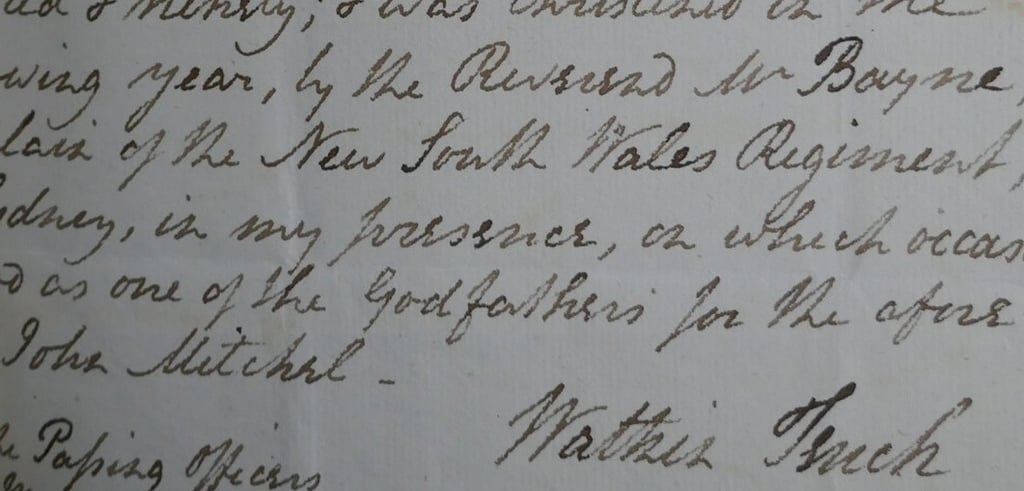 & was christened in the
wing year, by the Reverend Mr Bayne,
lain of the New South Wales Regiment,
ydney, in my presence, on which occas
d as one of the Godfathers for the afore
John Mitchel -
Watkin Tench
he Passing Officers